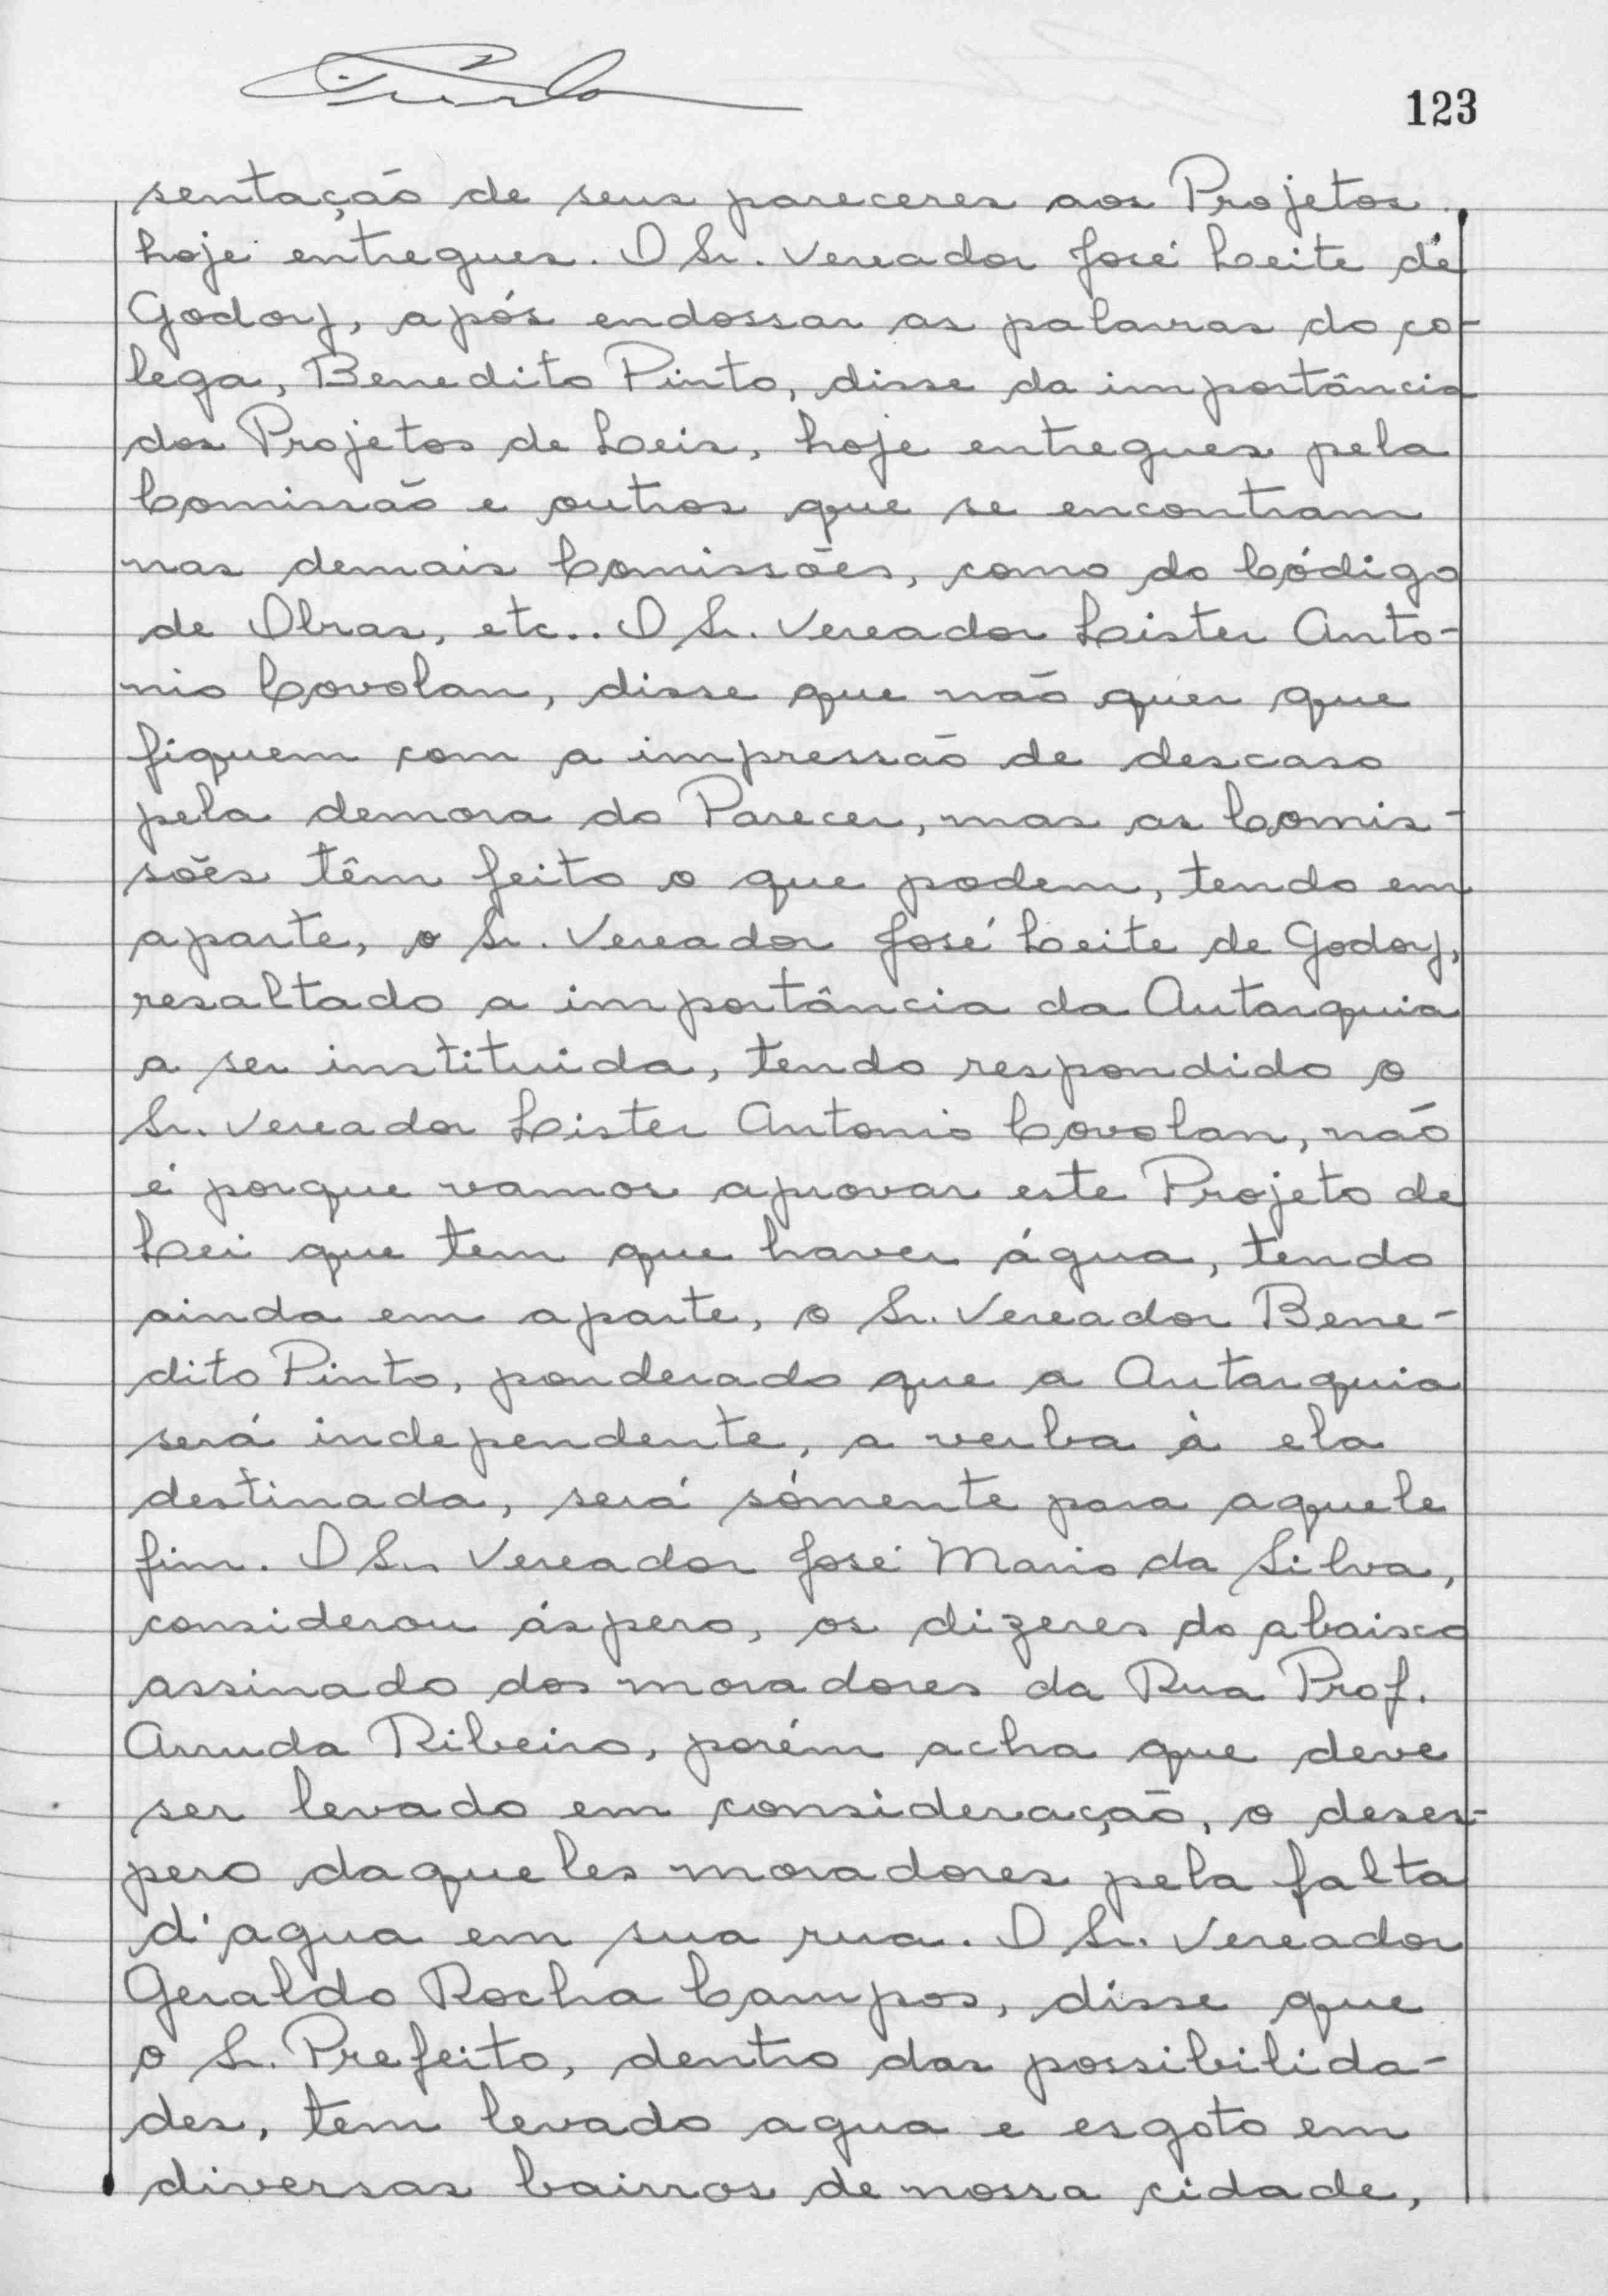 123
sentação de seus pareceres aos Projetos
hoje entregues. O Sr. Vereador José Leite de
Godoy, após endossar as palavras do co-
lega, Benedito Pinto, disse da importância
dos Projetos de Leis, hoje entregues pela
Comissão e outros que se encontram
nas demais Comissões, como do Código
de Obras, etc.. O Sr. Vereador Lister Anto-
nio Covolan, disse que não quer que
fiquem com a impressão de descaso
pela demora do Parecer, mas as Comis-
sões têm feito o que podem, tendo em
aparte, o Sr. Vereador José Leite de Godoy,
resaltado a importância da Autarquia
a ser instituida, tendo respondido o
Sr. Vereador Lister Antonio Covolan, não
é porque vamos aprovar este Projeto de
Lei que tem que haver água, tendo
ainda em aparte, o Sr. Vereador Bene-
dito Pinto, ponderado que a Autarquia
será independente, a verba à ela
destinada, será sómente para aquele
fim. O Sr. Vereador José Mario da Silva,
considerou áspero, os dizeres do abaixo
assinado dos moradores da Rua Prof.
Arruda Ribeiro, porém acha que deve
ser levado em consideração, o deses-
pero daqueles moradores pela falta
d'agua em sua rua. O Sr. Vereador
Geraldo Rocha Campos, disse que
o Sr. Prefeito, dentro das possibilida-
des, tem levado agua e esgoto em
diversas bairros de nossa cidade,